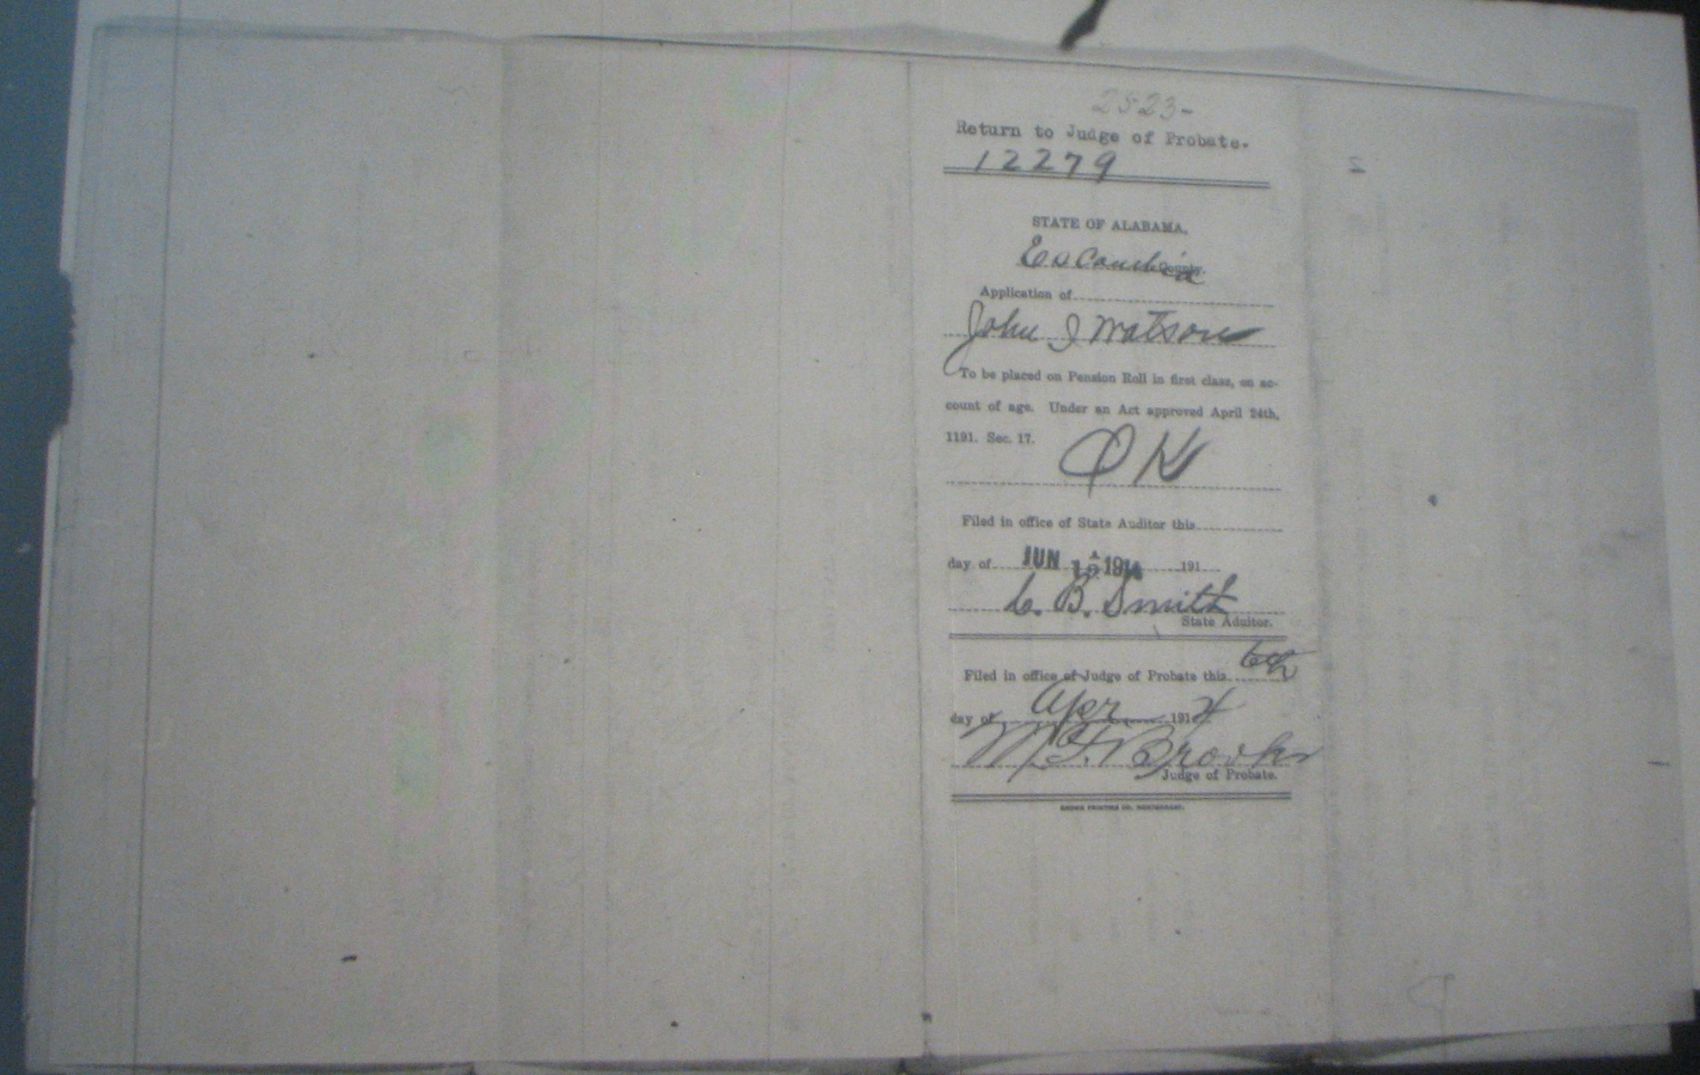 2523-
Return to Judge of Probate.
12279
STATE OF ALABAMA,
Escambia County.
Application of
John I Watson
To be placed on Pension Roll in first class, on ac-
count of age. Under an Act approved April 24th,
1191. Sec. 17.
OK
Filed in office of State Auditor this
day of JUN 1914 191
C. B. Smith
State Aduitor.
Filed in office of Judge of Probate this 6th
day of Apr 1914
M. F. Brooks
Judge of Probate.
BROWN PRINTING CO. MONTGOMERY.